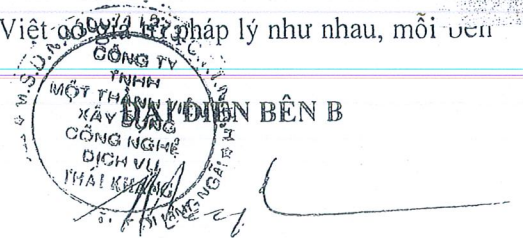 Việt có giá trị pháp lý như nhau, mỗi bên
ĐẠI DIỆN BÊN B
CÔNG TY
TNHH
MỘT THÀNH VIÊN
XÂY DỰNG
CÔNG NGHỆ
DỊCH VỤ
THÁI KHANG